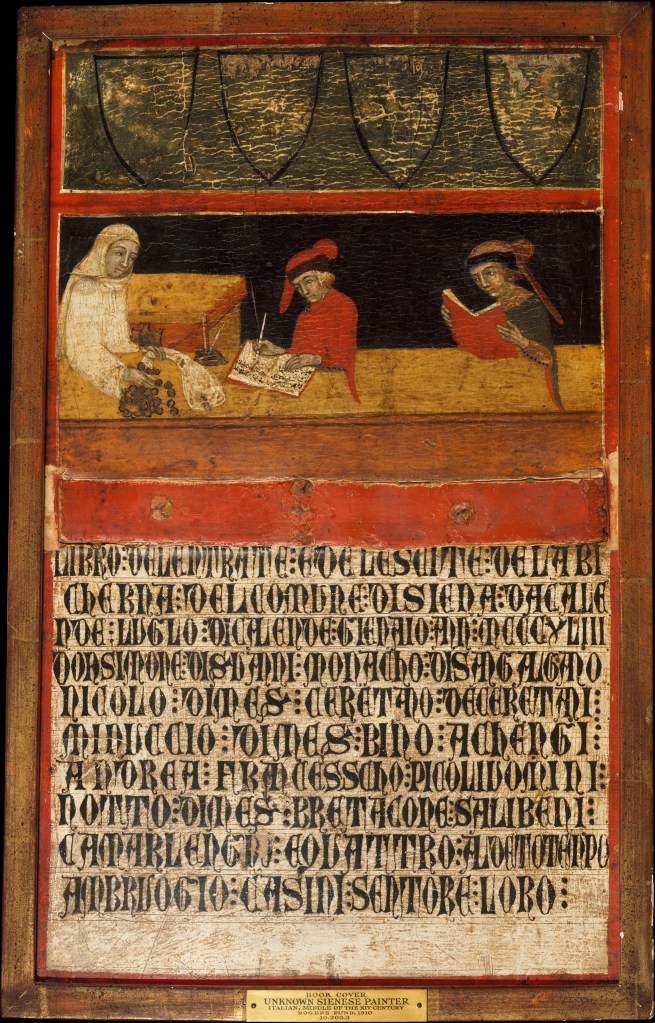 LIBRO : DELENTRATE : EDELESCITE : DELABI
CHERNA : DELCOMUNE : DISIENA : DACALE
NDE : LUGLO : DICALENDE : GIENAIO : ANN : MCCCXLIII
DONSIMONE : DISER : VANNI : MONACHO : DISANGALGANO
NICOLO : DIMES : CERETANO : DECERETANI :
MINUCCIO : DIMES : BINO : ACHENGI :
ANDREA : FRANCESSCHO : PICOLUOMINI :
NOTTO : DIMES : BRETACONE : SALIBENI :
CAMARLENGHI : EQUATTRO : ALDETOTENPO
AMBRUOGIO : CASINI : SENTORE : LORO :
BOOK COVER
UNKNOWN SIENESE PAINTER
ITALIAN, MIDDLE OF THE XIV CENTURY
ROGERS FUND, 1910
10.203.3